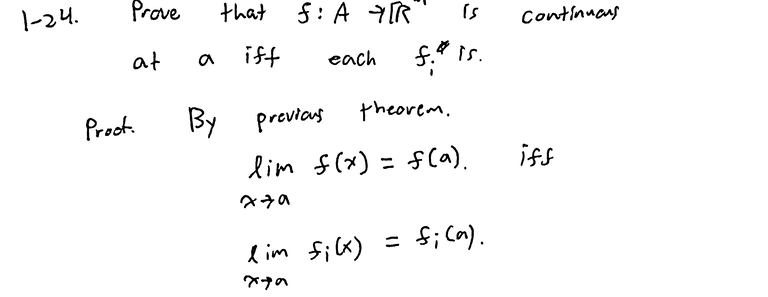 1-24. Prove that f: A → ℝᵐ is continuous
at a iff each fᵢ is.
Proof. By previous theorem.
lim f(x) = f(a). iff
x→a
lim fᵢ(x) = fᵢ(a).
x→a